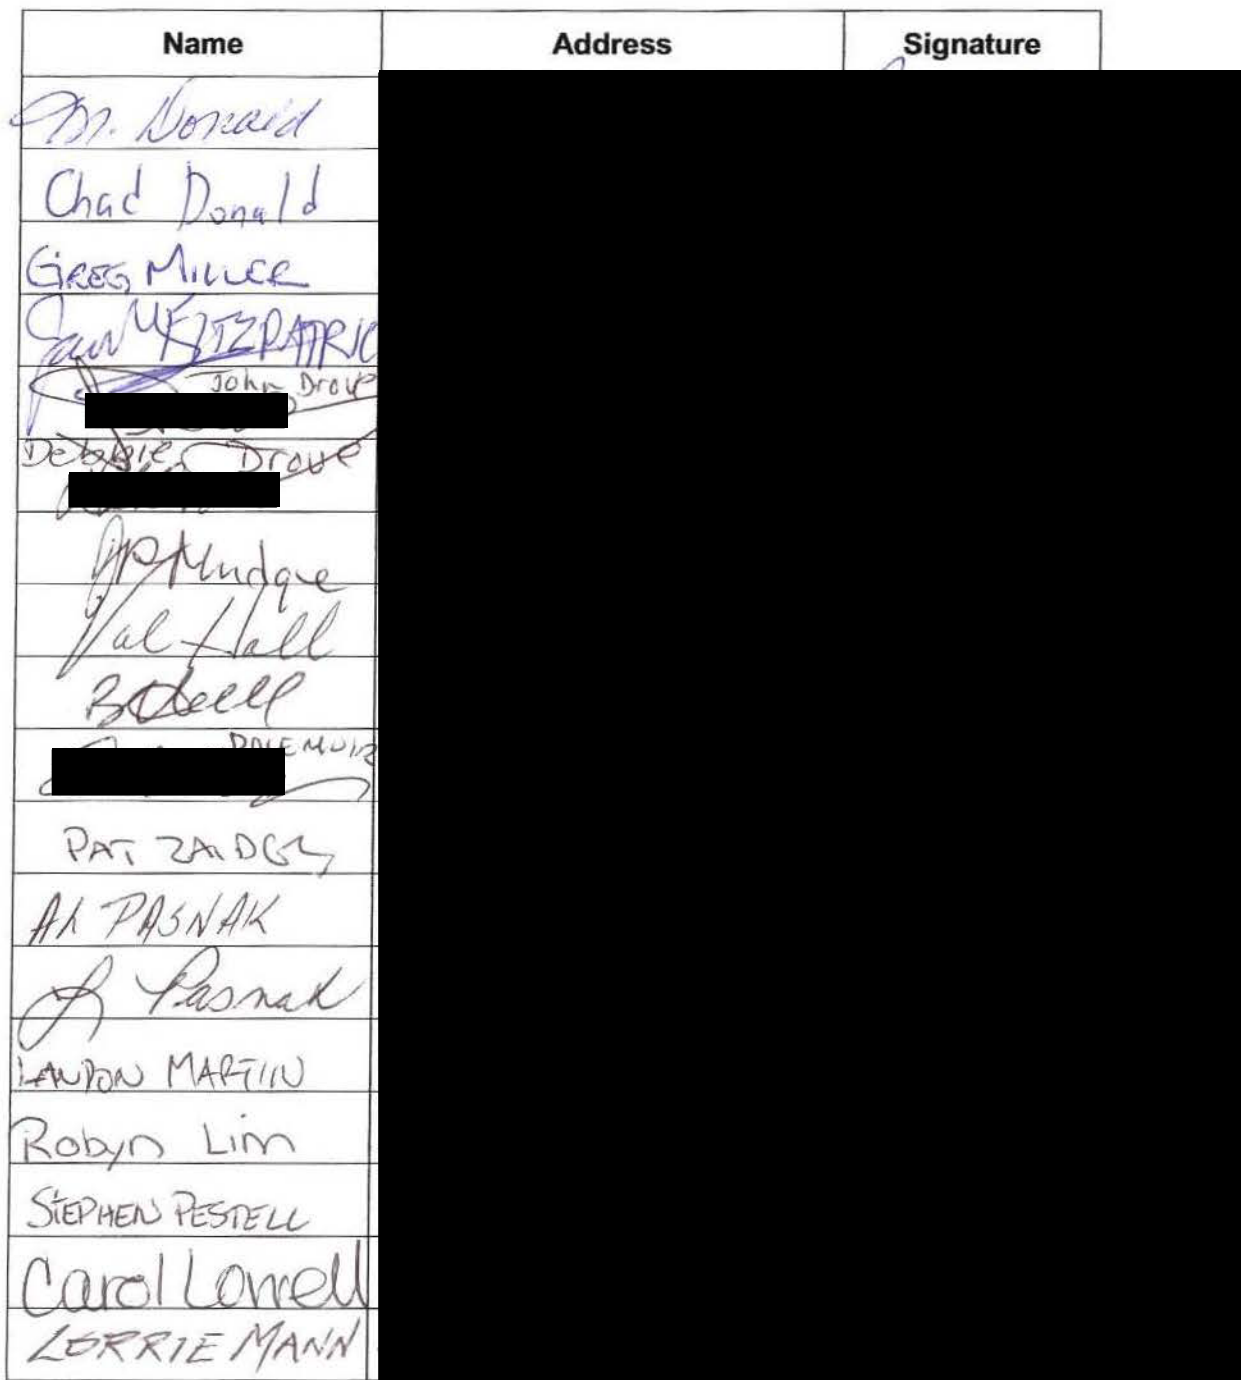 Name Address Signature
M. Donald
Chad Donald
GREG MILLER
FITZPATRIC
John Drove
Debbie Drove
Mudge
Val Hall
DALE MUIR
PAT
Al PASNAK
L Pasnak
LANDON MARTIN
Robyn Lim
STEPHEN PESTELL
Carol Lowell
LORRIE MANN